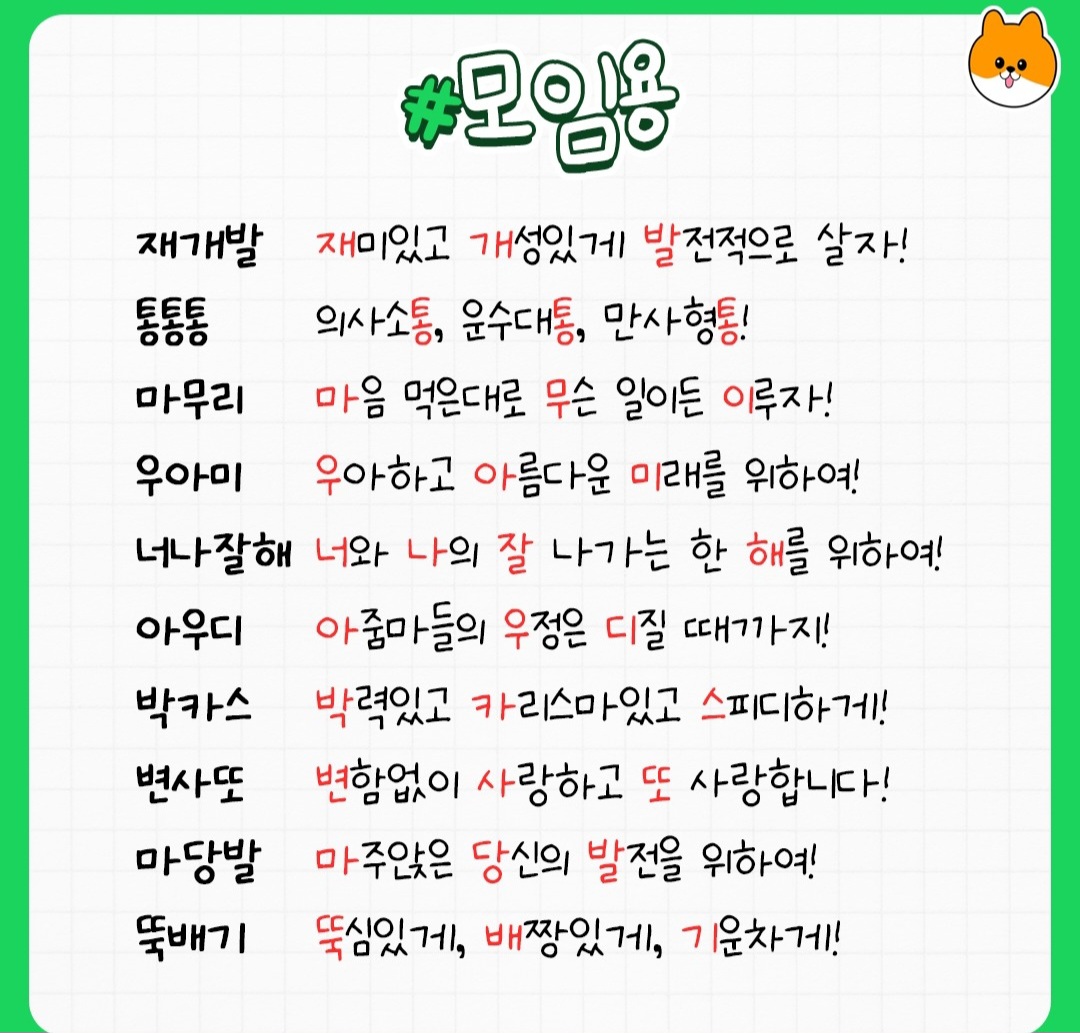 #모임용
재개발 재미있고 개성있게 발전적으로 살자!
통통통 의사소통, 운수대통, 만사형통!
마무리 마음 먹은대로 무슨 일이든 이루자!
우아미 우아하고 아름다운 미래를 위하여!
너나잘해 너와 나의 잘 나가는 한 해를 위하여!
아우디 아줌마들의 우정은 디질 때까지!
박카스 박력있고 카리스마있고 스피디하게!
변사또 변함없이 사랑하고 또 사랑합니다!
마당발 마주앉은 당신의 발전을 위하여!
뚝배기 뚝심있게, 배짱있게, 기운차게!